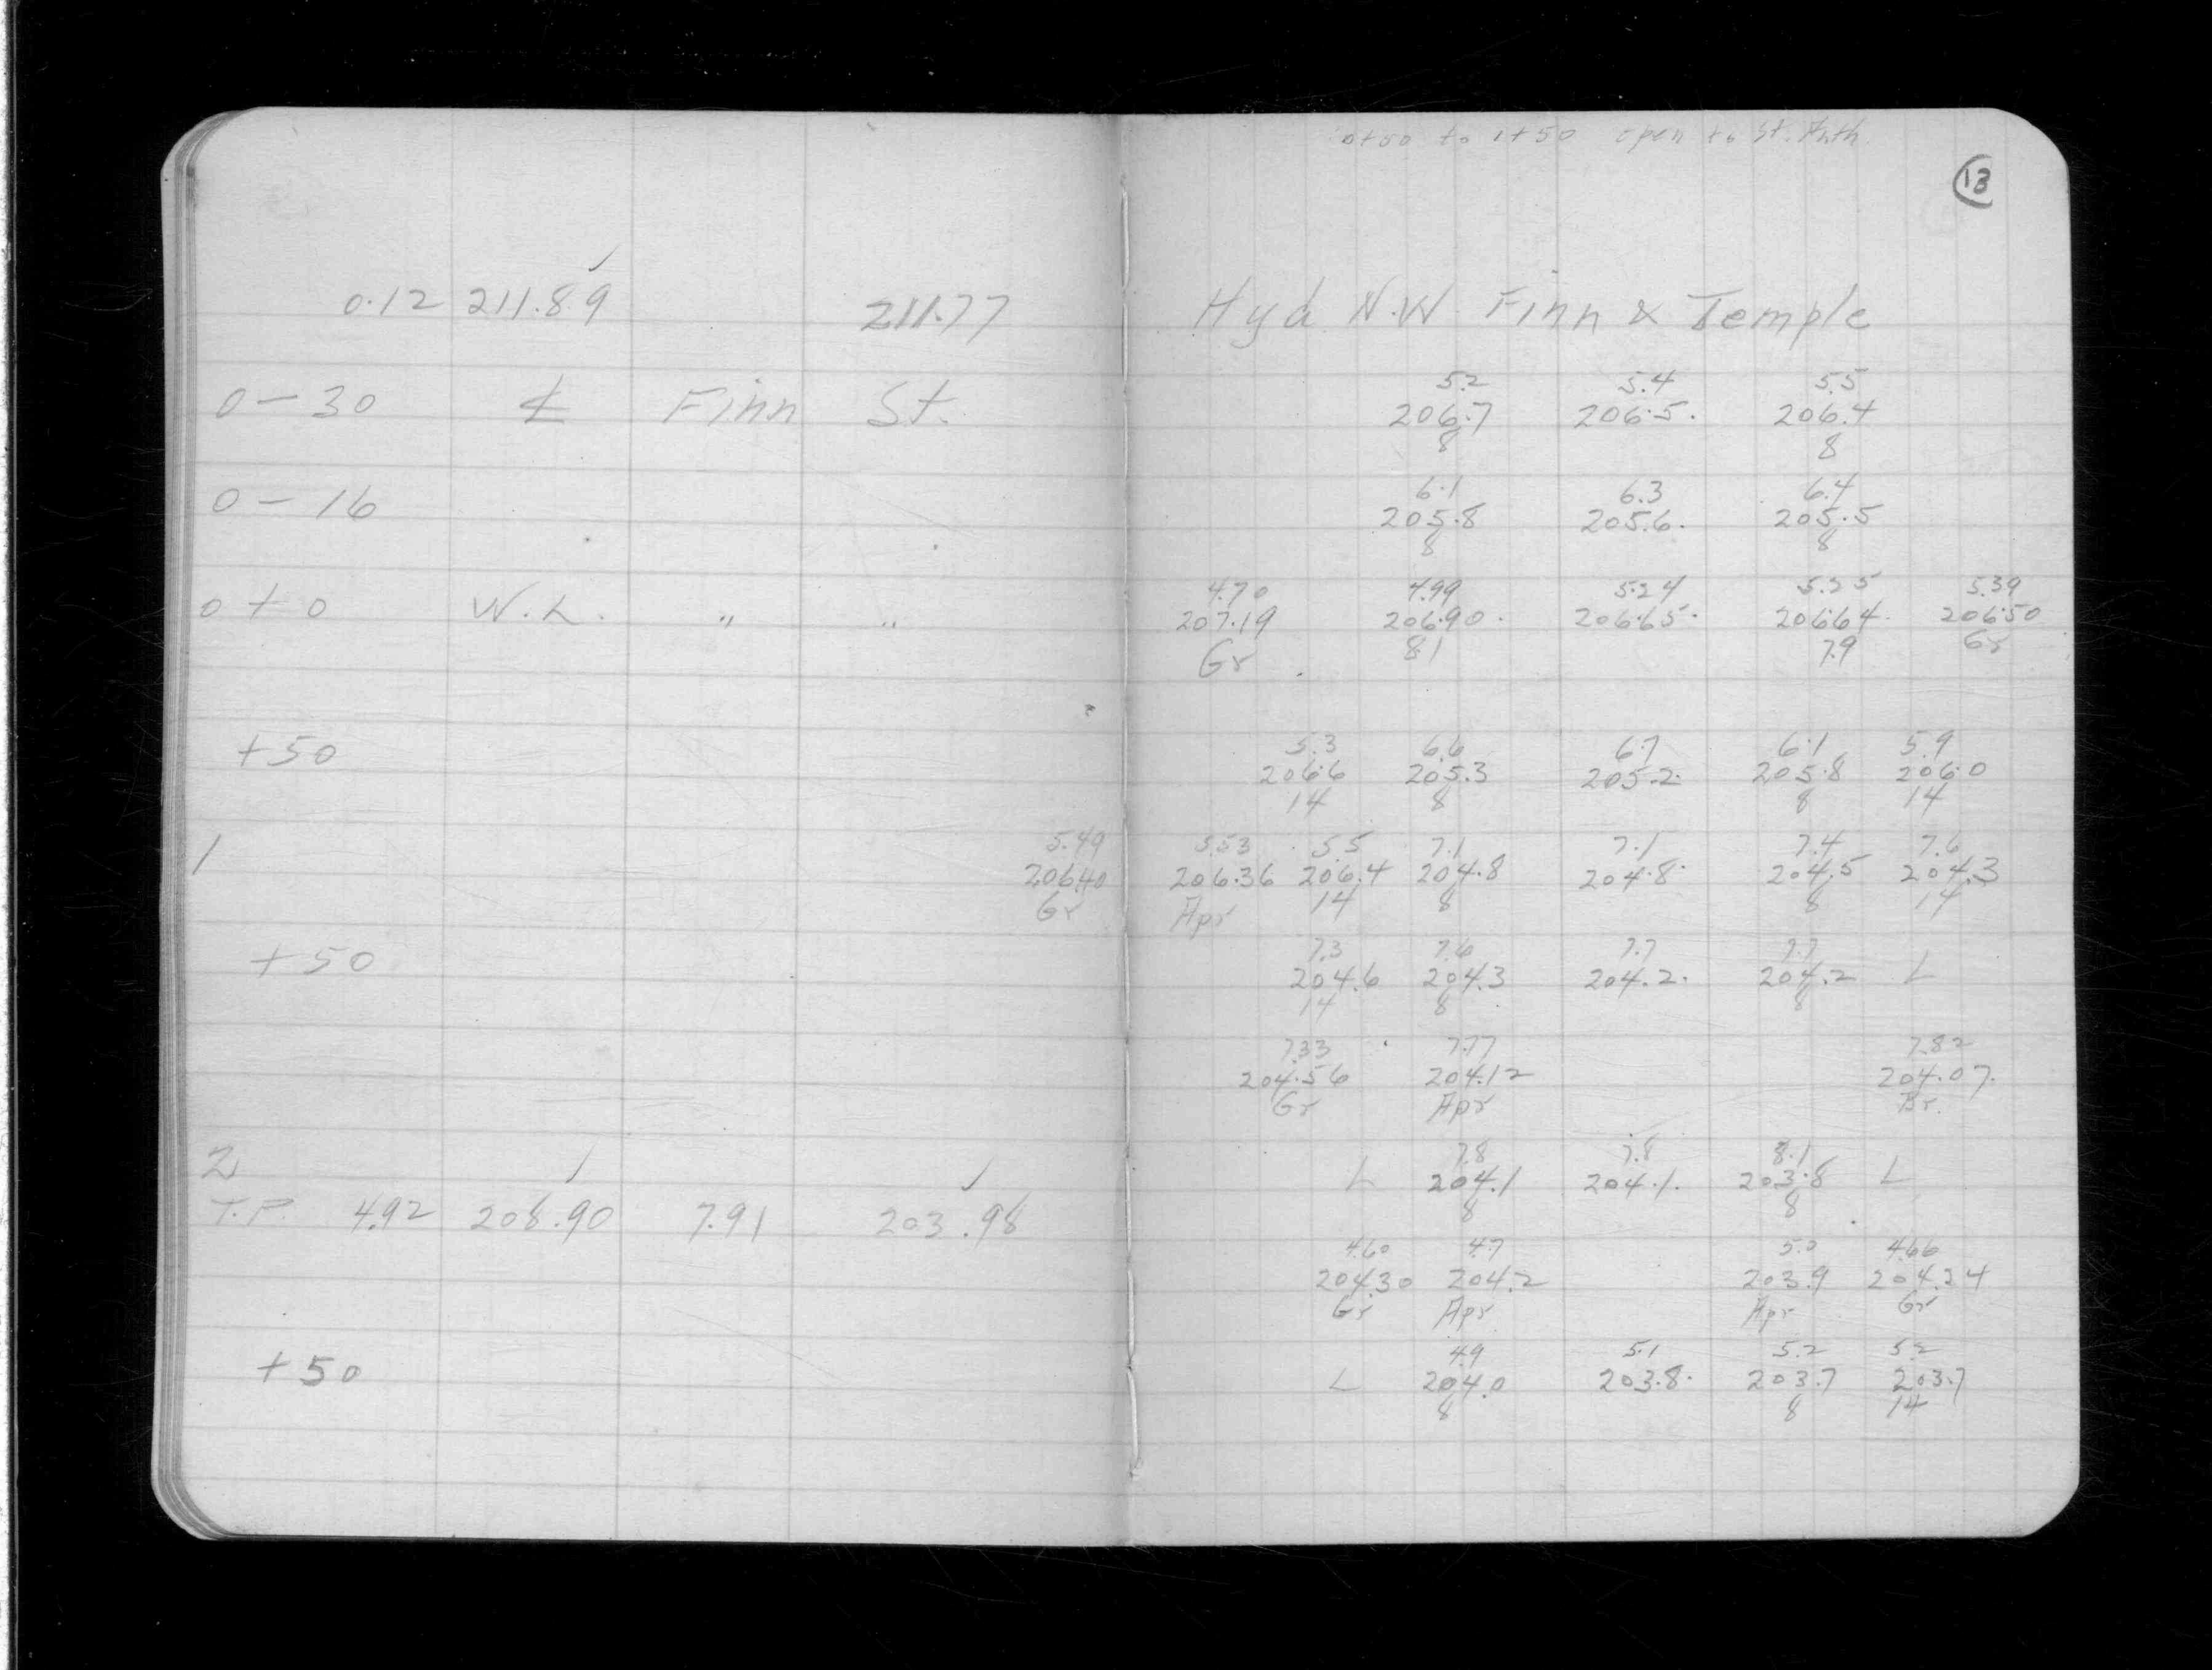 0+50 to 1+50 open to St. Anth.
13
0.12 211.89 211.77 Hyd N.W. Finn & Temple
5.2 5.4 5.5
0-30 ℄ Finn St. 206.7 206.5. 206.4
8 8
6.1 6.3 6.4
0-16 205.8 205.6. 205.5
8 8
4.70 4.99 5.24 5.25 5.39
0+0 W.L. " " 207.19 206.90. 206.65. 206.64. 206.50
Gr 8.1 7.9 Gr
5.3 6.6 6.7 6.1 5.9
+50 206.6 205.3 205.2. 205.8 206.0
14 8 8 14
5.49 5.53 5.5 7.1 7.1 7.4 7.6
1 206.40 206.36 206.4 204.8 204.8. 204.5 204.3
Gr Apr 14 8 8 14
7.3 7.6 7.7 7.7
+50 204.6 204.3 204.2. 204.2 L
14 8 8
7.33 7.77 7.82
204.56 204.12 204.07.
Gr Apr Br.
7.8 7.8 8.1
2 L 204.1 204.1. 203.8 L
8 8
T.P. 4.92 208.90 7.91 203.98
4.60 4.7 5.0 4.66
204.30 204.2 203.9 204.24
Gr Apr Apr Gr
4.9 5.1 5.2 5.2
+50 L 204.0 203.8. 203.7 203.7
8 8 14